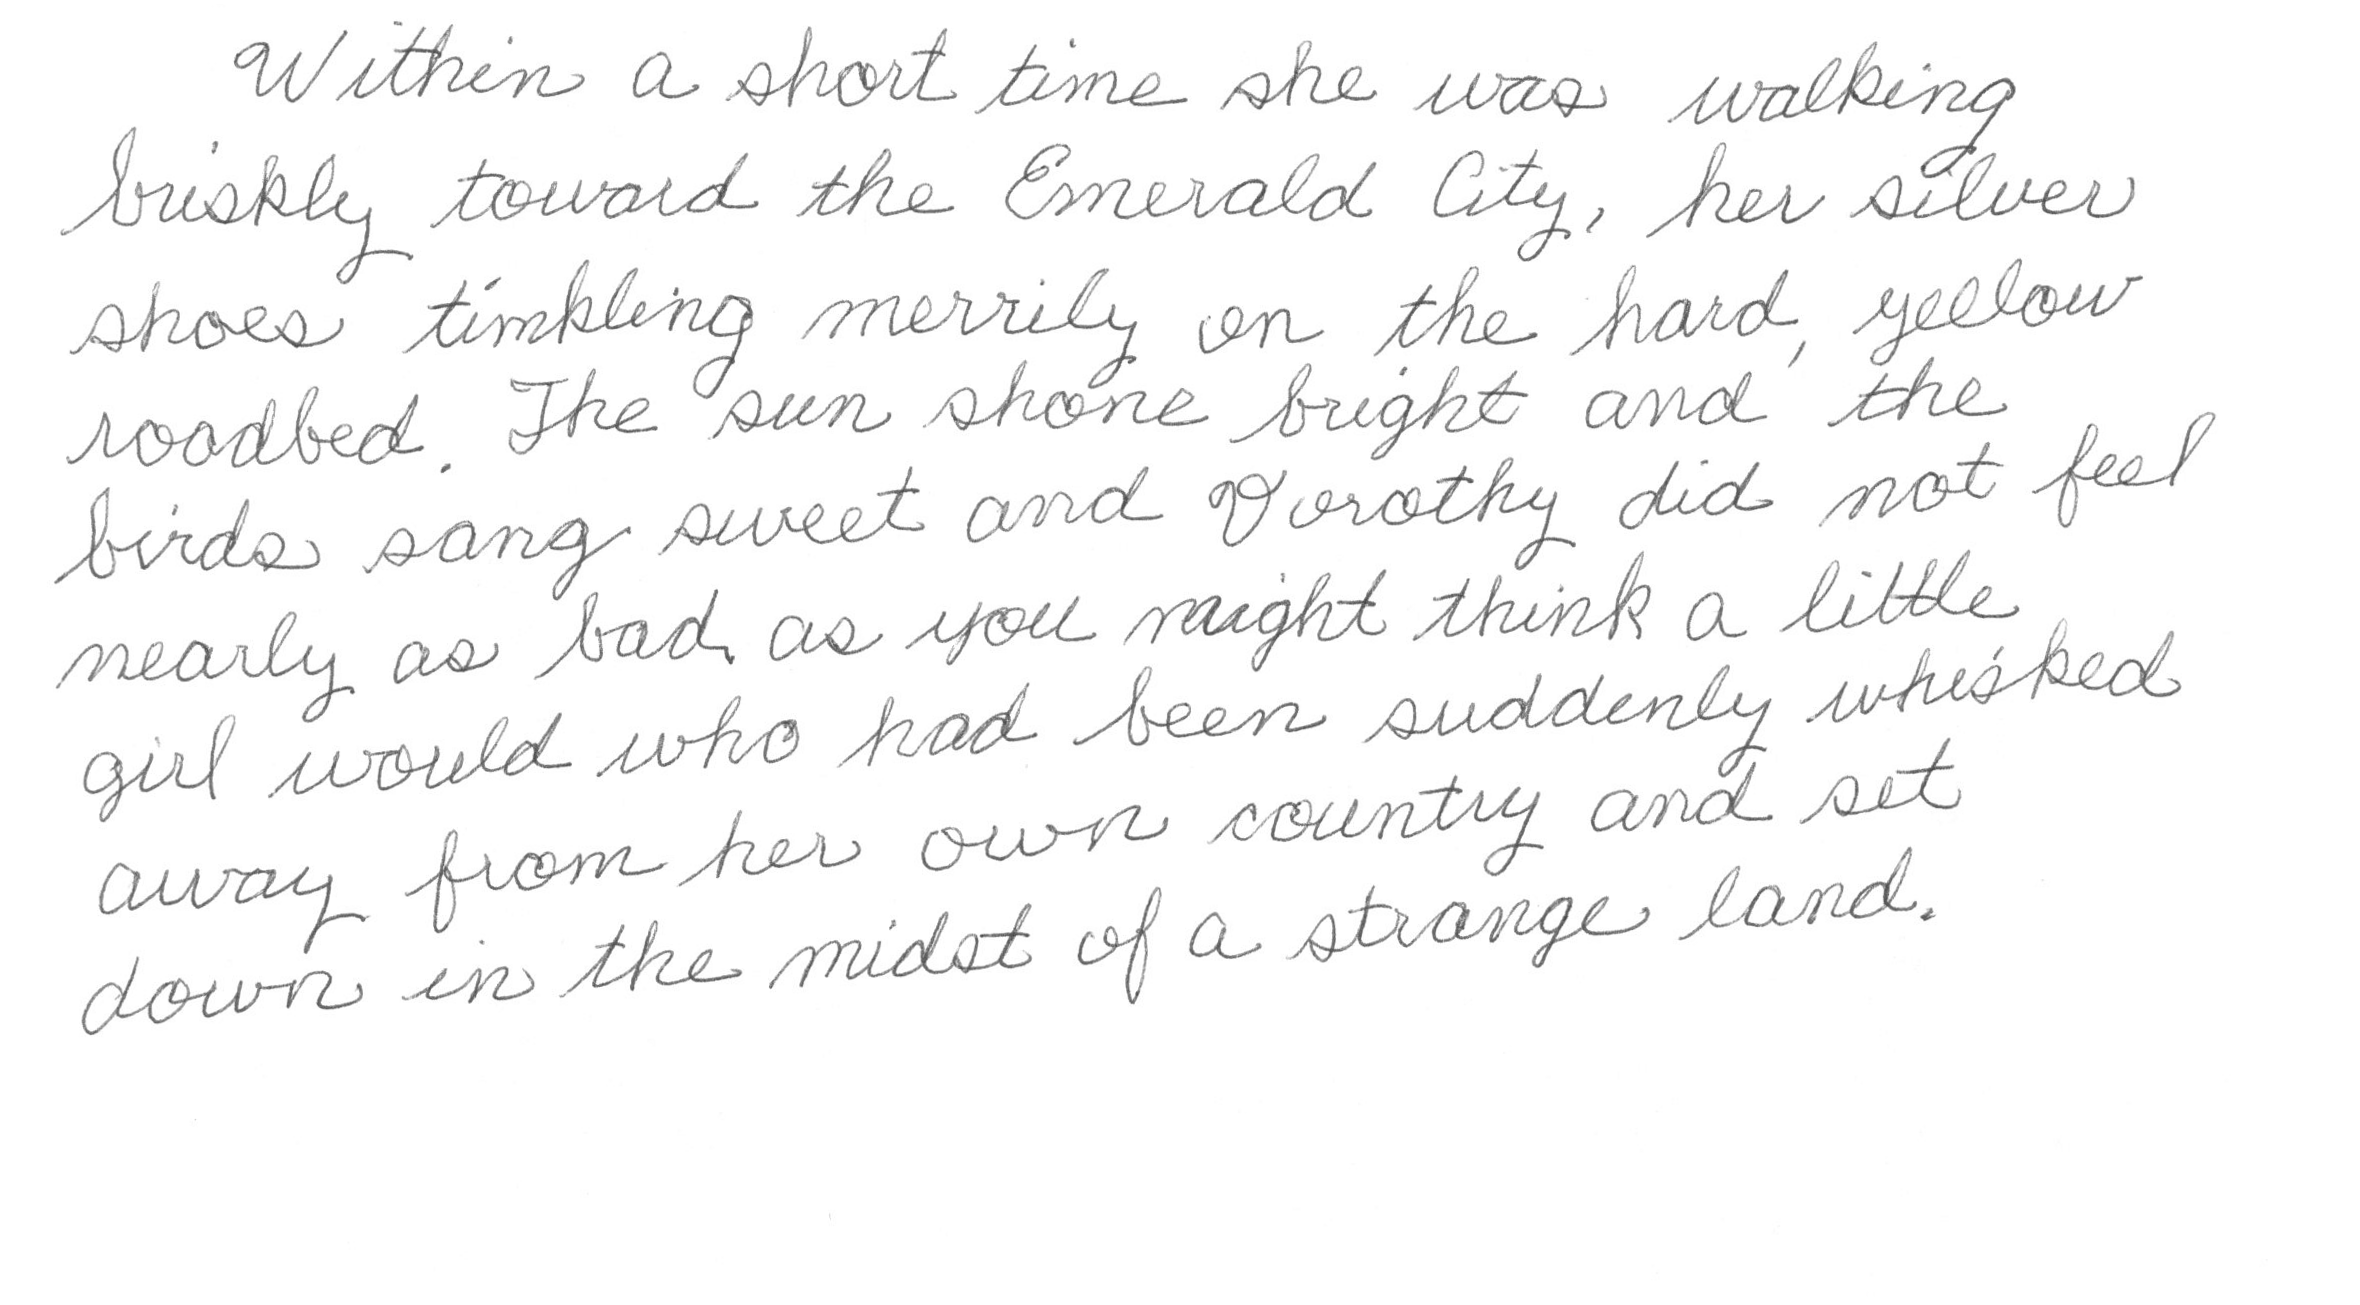 Within a short time she was walking
briskly toward the Emerald City, her silver
shoes tinkling merrily on the hard, yellow
roadbed. The sun shone bright and the
birds sang sweet and Dorothy did not feel
nearly as bad as you might think a little
girl would who had been suddenly whisked
away from her own country and set
down in the midst of a strange land.